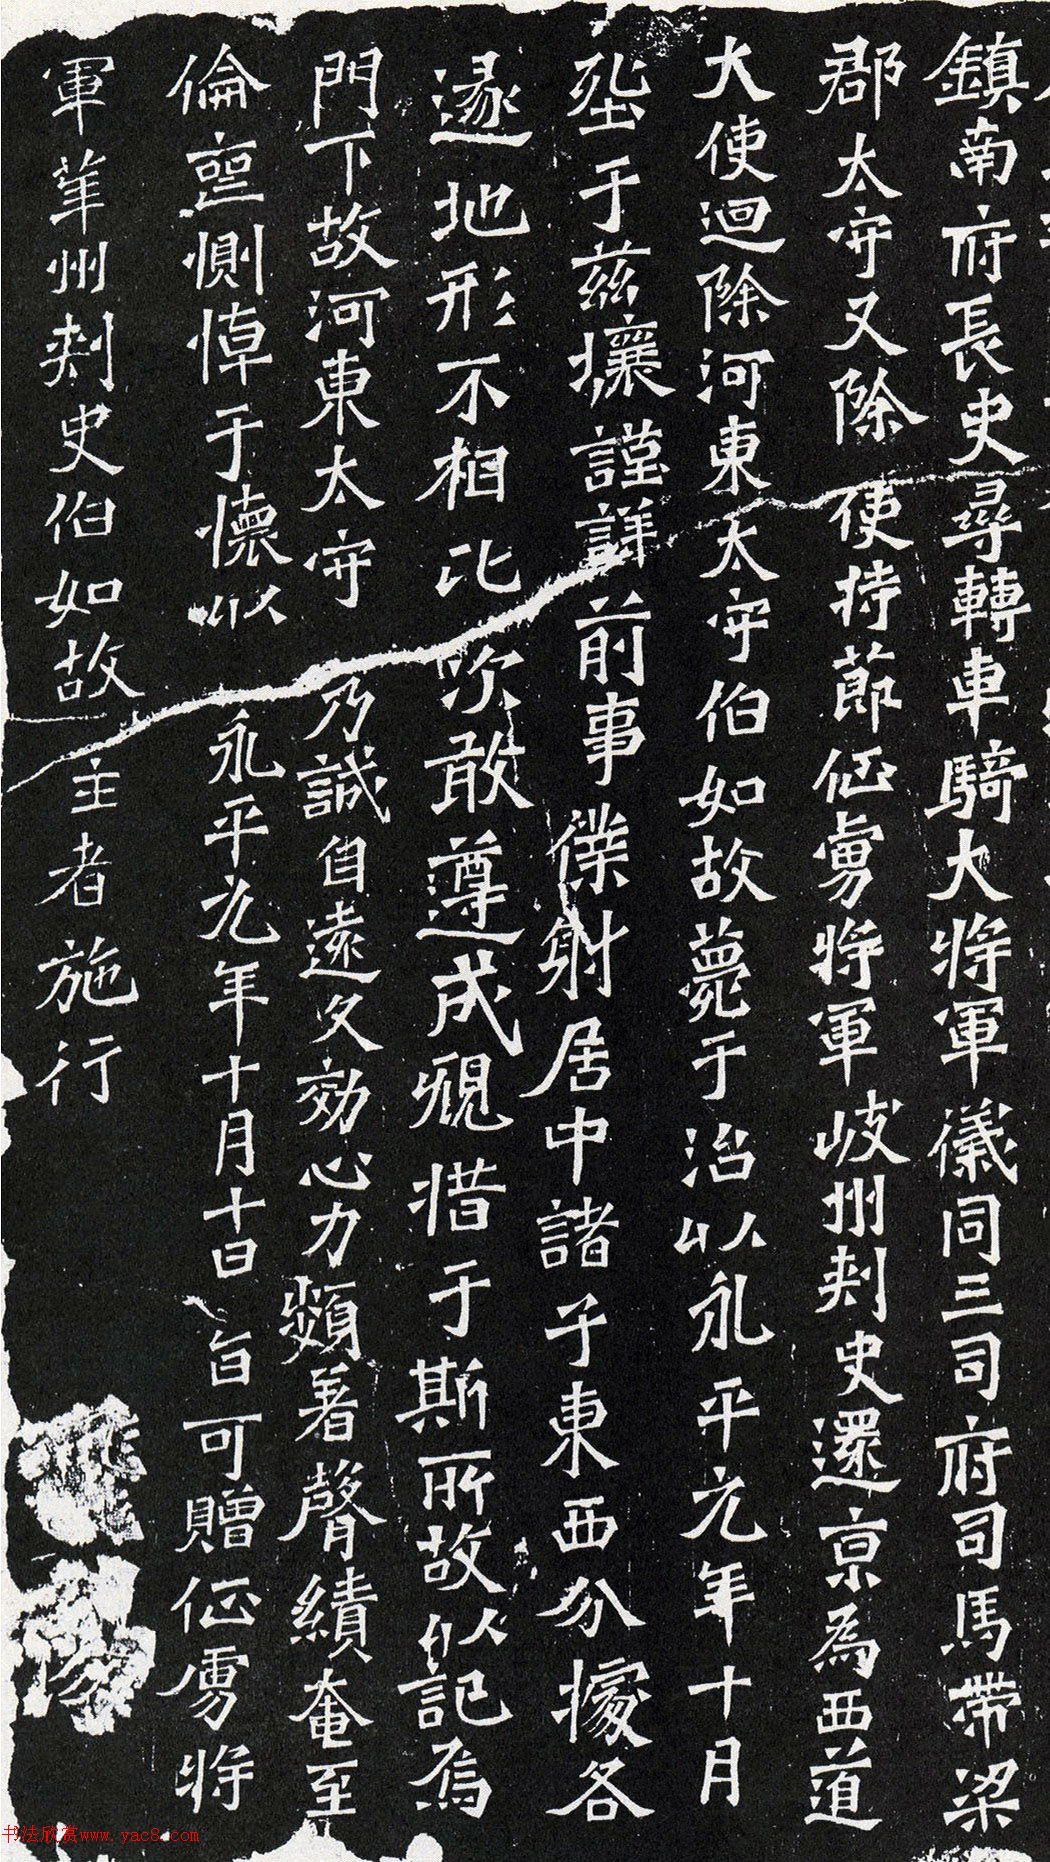 鎮南府長史尋轉車騎大將軍儀同三司府司馬帶梁
郡太守又除使持節征虜將軍岐州刾史還京為西道
大使迴除河東太守伯如故薨于治以永平元年十月
塟于茲壤謹詳前事僕射居中諸子東西分據各
逐地形不相比次敢尊成覢惜于斯所故以記焉
門下故河東太守乃誠自遠久効心力頻著聲績奄至
倫壼惻悼于懷以永平元年十月十日旨可贈征虜將
軍華州刾史伯如故主者施行
书法欣赏www.yac8.com